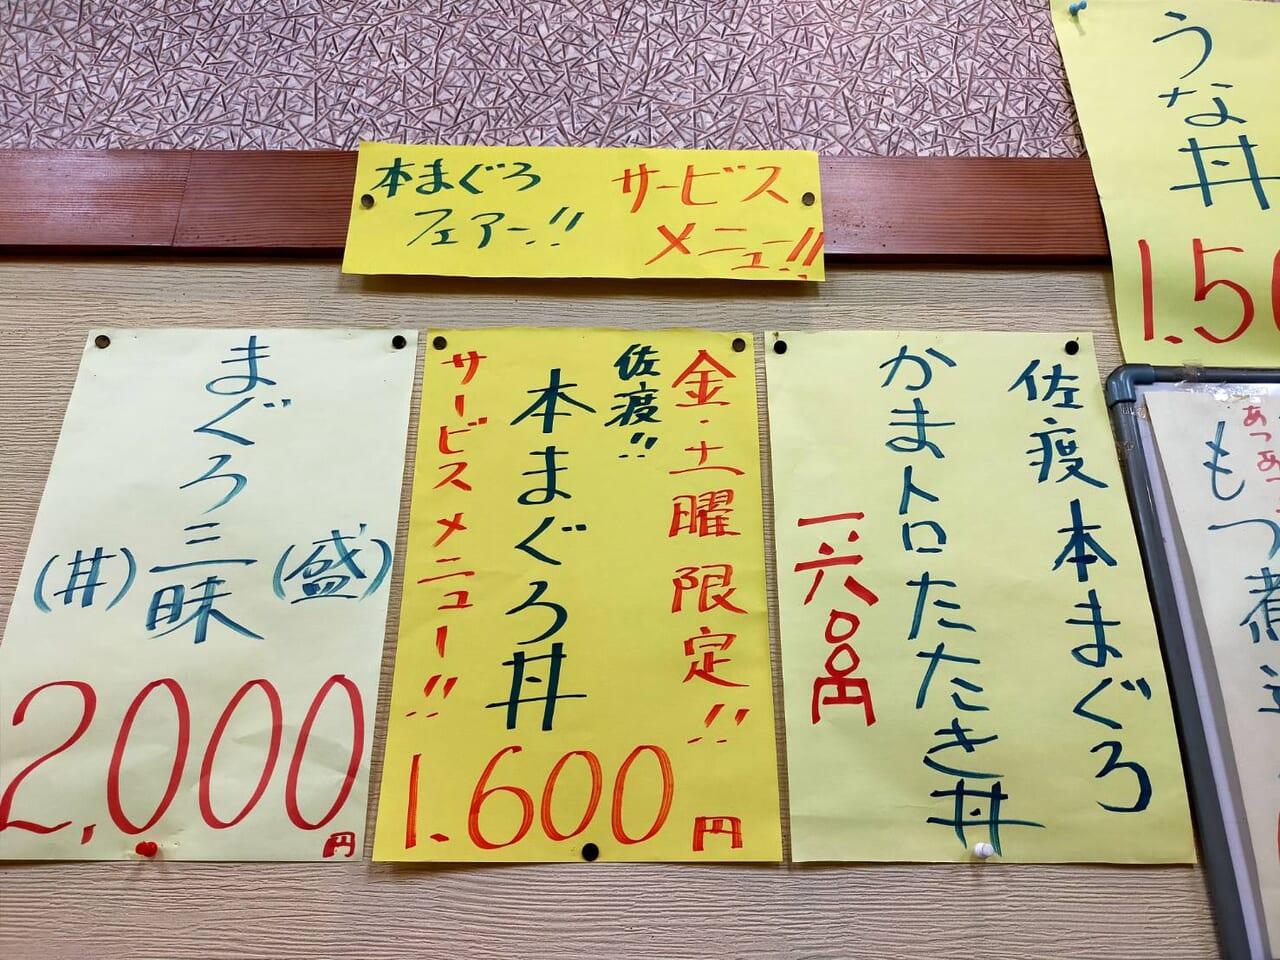 本まぐろ
フェアー!!
サービス
メニュー!!
うな丼
1.5
佐渡本まぐろ
かまトロたたき丼
一、六〇〇円
金・土曜限定!!
佐渡!!
本まぐろ丼
サービスメニュー!!
1.600円
まぐろ三昧
(盛)
(丼)
2,000円
あつあつ
もつ煮込